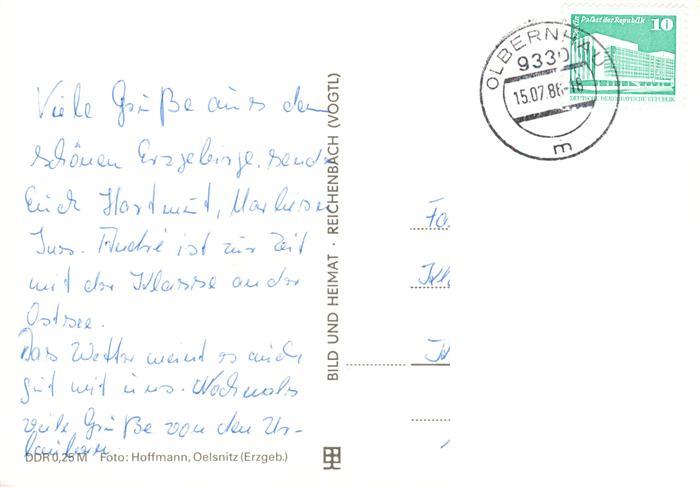 Viele Grüße aus dem
schönen Erzgebirge. sendet
Euch Hartmut, Marlies u.
Jens. André ist zur Zeit
mit der Klasse an der
Ostsee.
Das Wetter meint es auch
gut mit uns. Nochmals
viele Grüße von den Ur-
laubern.
DDR 0,25 M Foto: Hoffmann, Oelsnitz (Erzgeb.)
BILD UND HEIMAT · REICHENBACH (VOGTL)
OLBERNHAU
9330
15.07.86-18
m
Palast der Republik 10
DEUTSCHE DEMOKRATISCHE REPUBLIK
Fa